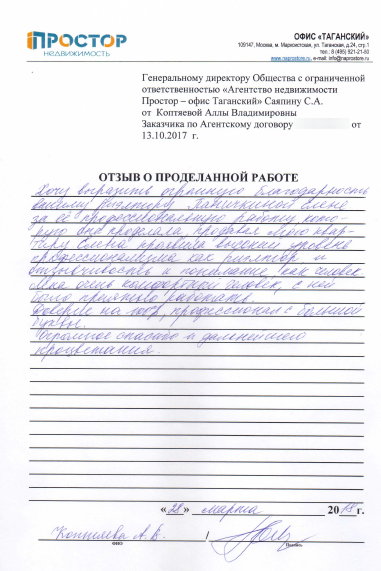 ПРОСТОР
недвижимость
ОФИС «ТАГАНСКИЙ»
109147, Москва, м. Марксистская, ул. Таганская, д.24, стр.1
тел.: 8 (495) 921-21-80
www.naprostore.ru, e-mail: info@naprostore.ru
Генеральному директору Общества с ограниченной
ответственностью «Агентство недвижимости
Простор – офис Таганский» Саяпину С.А.
от Коптяевой Аллы Владимировны
Заказчика по Агентскому договору от
13.10.2017 г.
ОТЗЫВ О ПРОДЕЛАННОЙ РАБОТЕ
Хочу выразить огромную благодарность
вашему риэлтору Паничкиной Елене
за её профессиональную работу, кото-
рую она проделала, продавая мою квар-
тиру. Елена проявила высокий уровень
профессионализма как риэлтор и
отзывчивость и понимание, как человек.
Мне очень комфортный человек, с ней
было приятно работать.
Доверие на 100%, профессионал с большой
буквы.
Огромное спасибо и дальнейшего
процветания.
« 28 » марта 2018 г.
Коптяева А. В. /
ФИО
Подпись